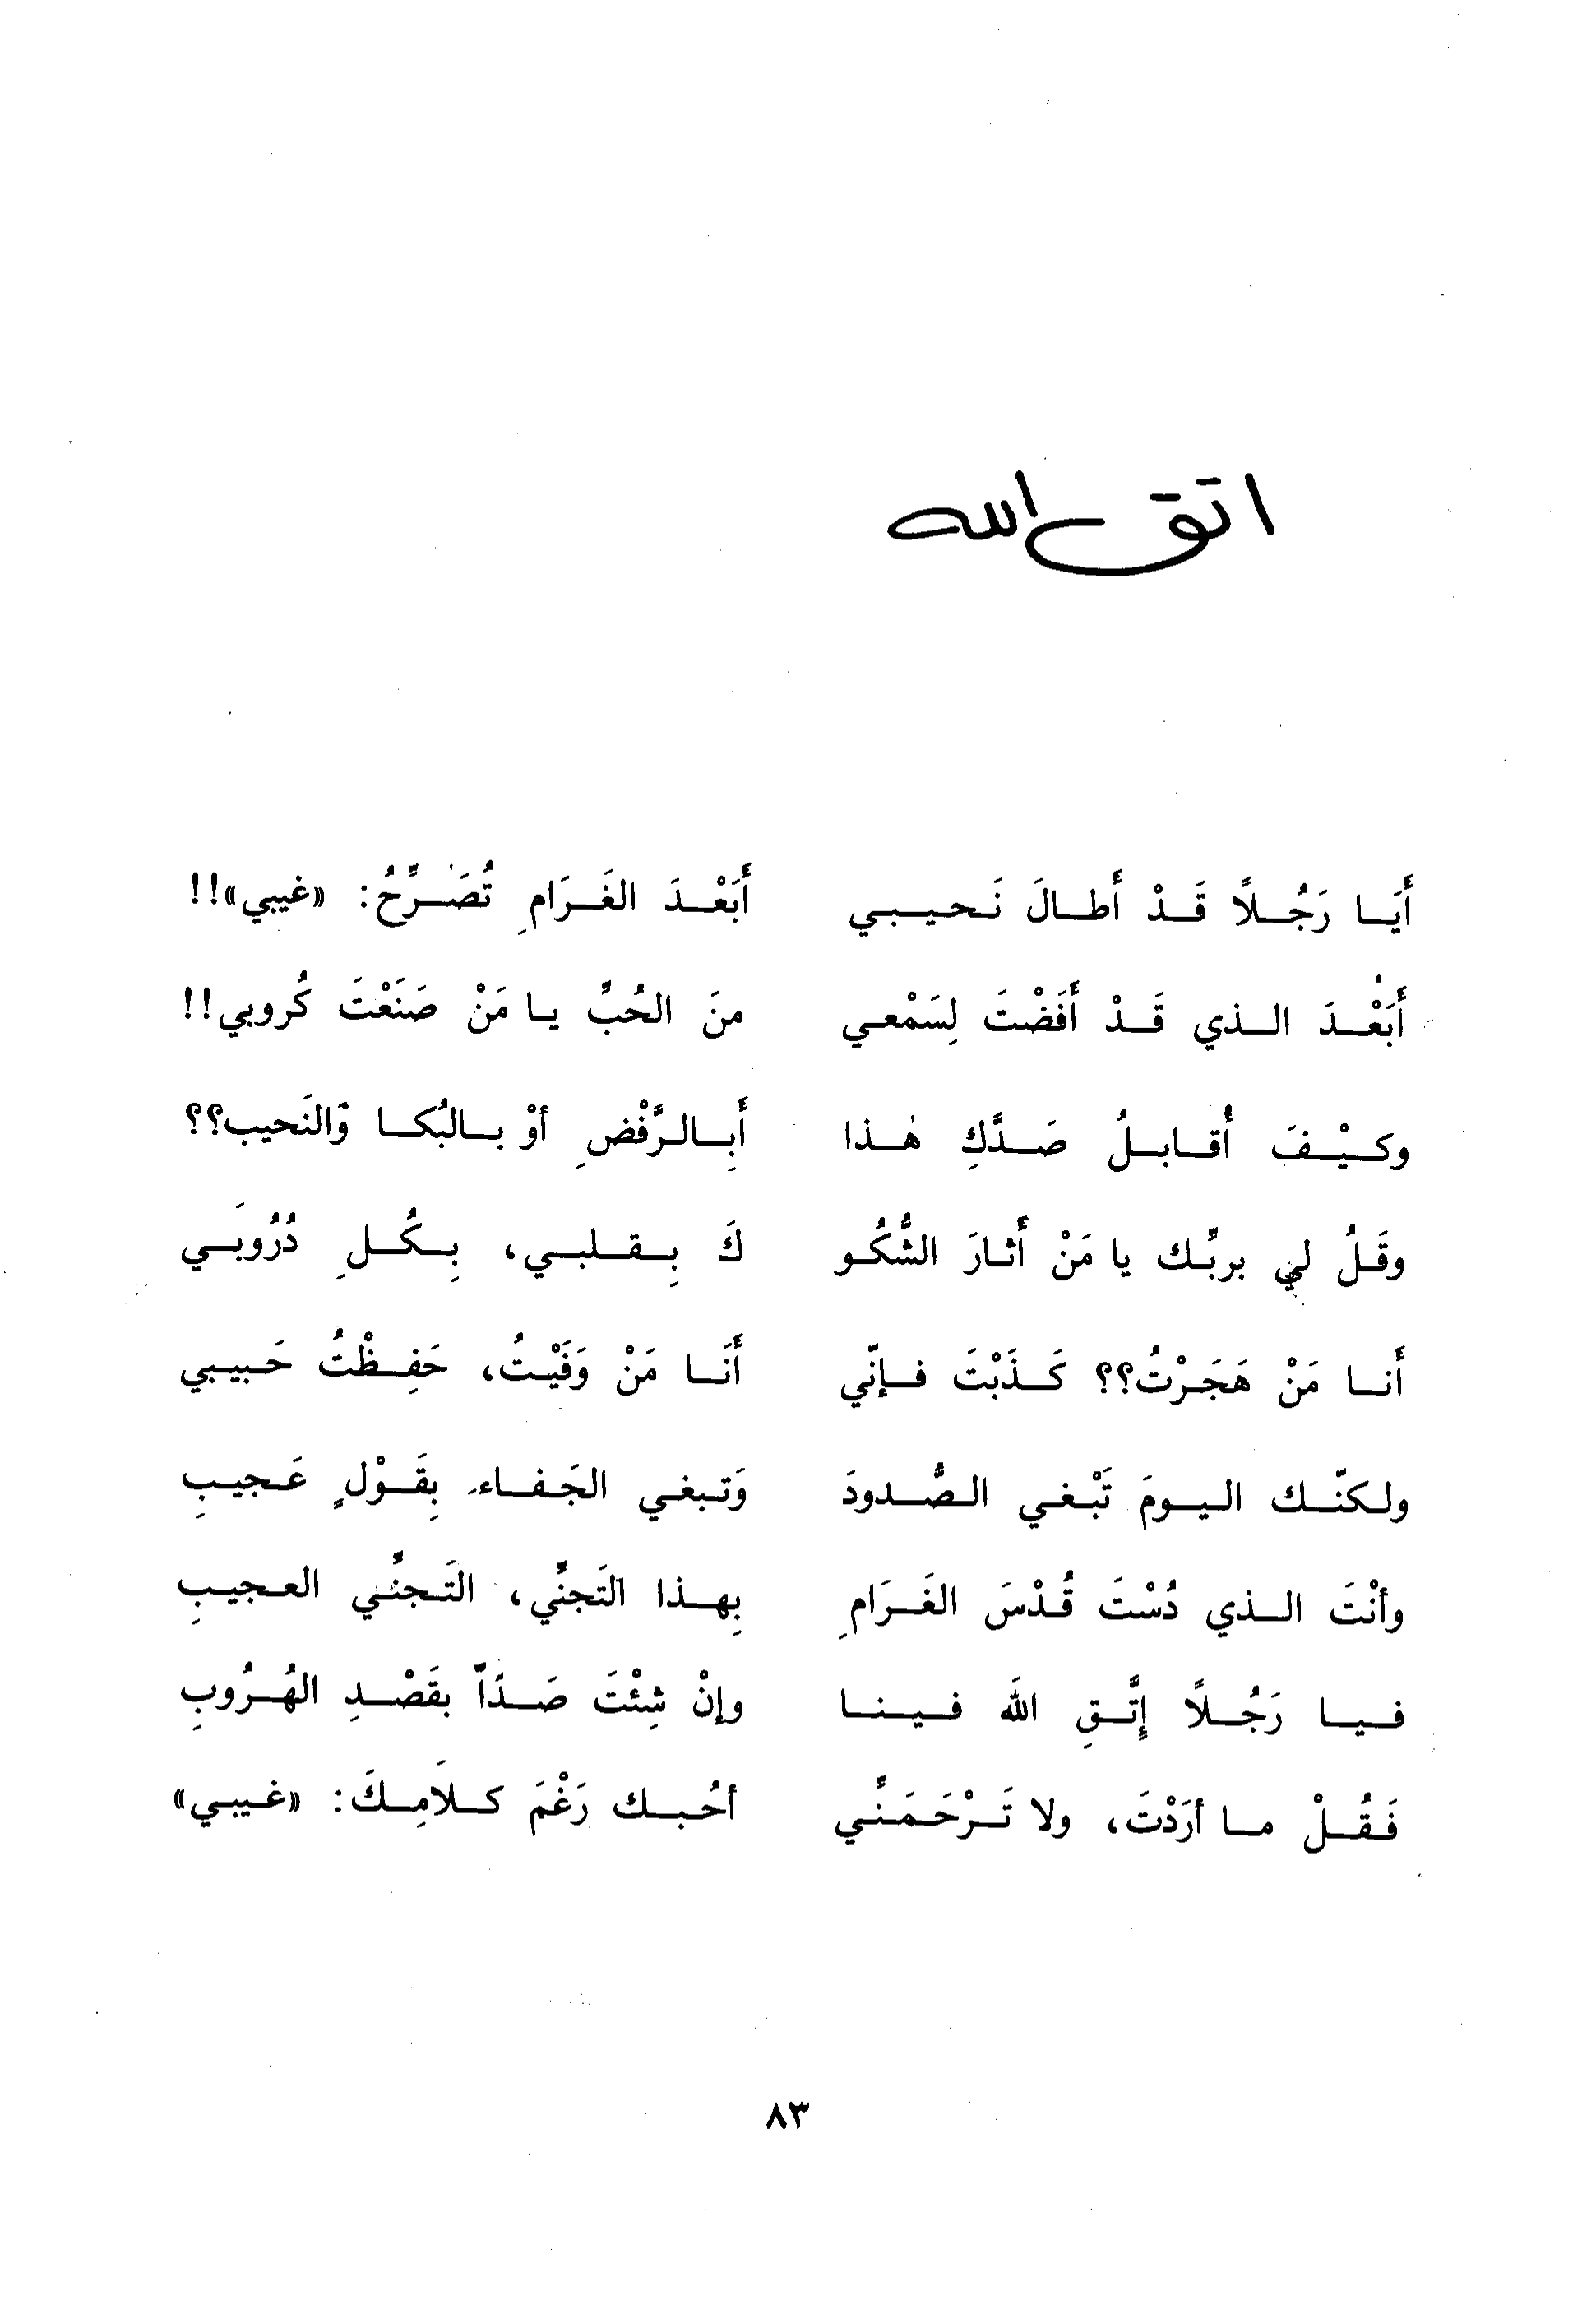 اتق الله
أَيَا رَجُلاً قَدْ أَطالَ نَحيبي أَبَعْدَ الغَرَامِ تُصَرِّحُ: «غيبي»!!
أَبَعْدَ الذي قَدْ أَفَضْتَ لِسَمْعي منَ الحُبِّ يا مَنْ صَنَعْتَ كُروبي!!
وكَيْفَ أُقابلُ صَدَّكِ هٰذا أَبِالرَّفْضِ أوْ بالبُكا وَالنَحيب؟؟
وقَلُ لي بربِّك يا مَنْ أَثارَ الشُّكُو كَ بِقلبي، بِكُلِ دُرُوبَي
أَنا مَنْ هَجَرْتُ؟؟ كَذَبْتَ فإنّي أَنَا مَنْ وَفَيْتُ، حَفِظْتُ حَبيبي
ولكنّك اليومَ تَبْغي الصُّدودَ وَتبغي الجَفاء بِقَوْلٍ عَجيبِ
وأنْتَ الذي دُسْتَ قُدْسَ الغَرَامِ بِهذا التَجنِّي، التَجنِّي العجيبِ
فيا رَجُلاً إتَّقِ الله فينا وإنْ شِئْتَ صَدّاً بقَصْدِ الهُرُوبِ
فَقُلْ ما أرَدْتَ، ولا تَرْحَمَنِّي أحُبك رَغْمَ كلاَمِكَ: «غيبي»
٨٣